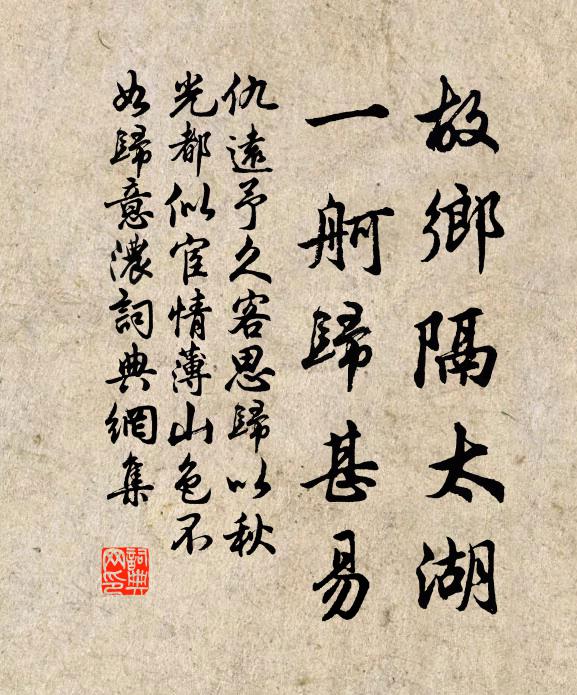 故鄉隔太湖
一舸歸甚易
仇遠予久客思歸以秋
光都似宦情薄山色不
如歸意濃詞典網集
詞典
网印